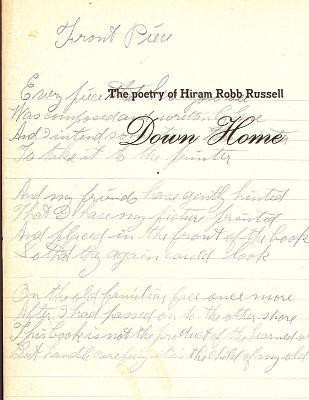 Front Piece
The poetry of Hiram Robb Russell
Down Home
Every piece
Was composed and written
And I intend
To take it to the printer
And my friends have gently hinted
That I have my picture printed
And placed in the front of the book
So that they again could look
On the old familiar face once more
After I had passed on to the other shore
This book is not the product of the learned
But handle carefully the child of my old